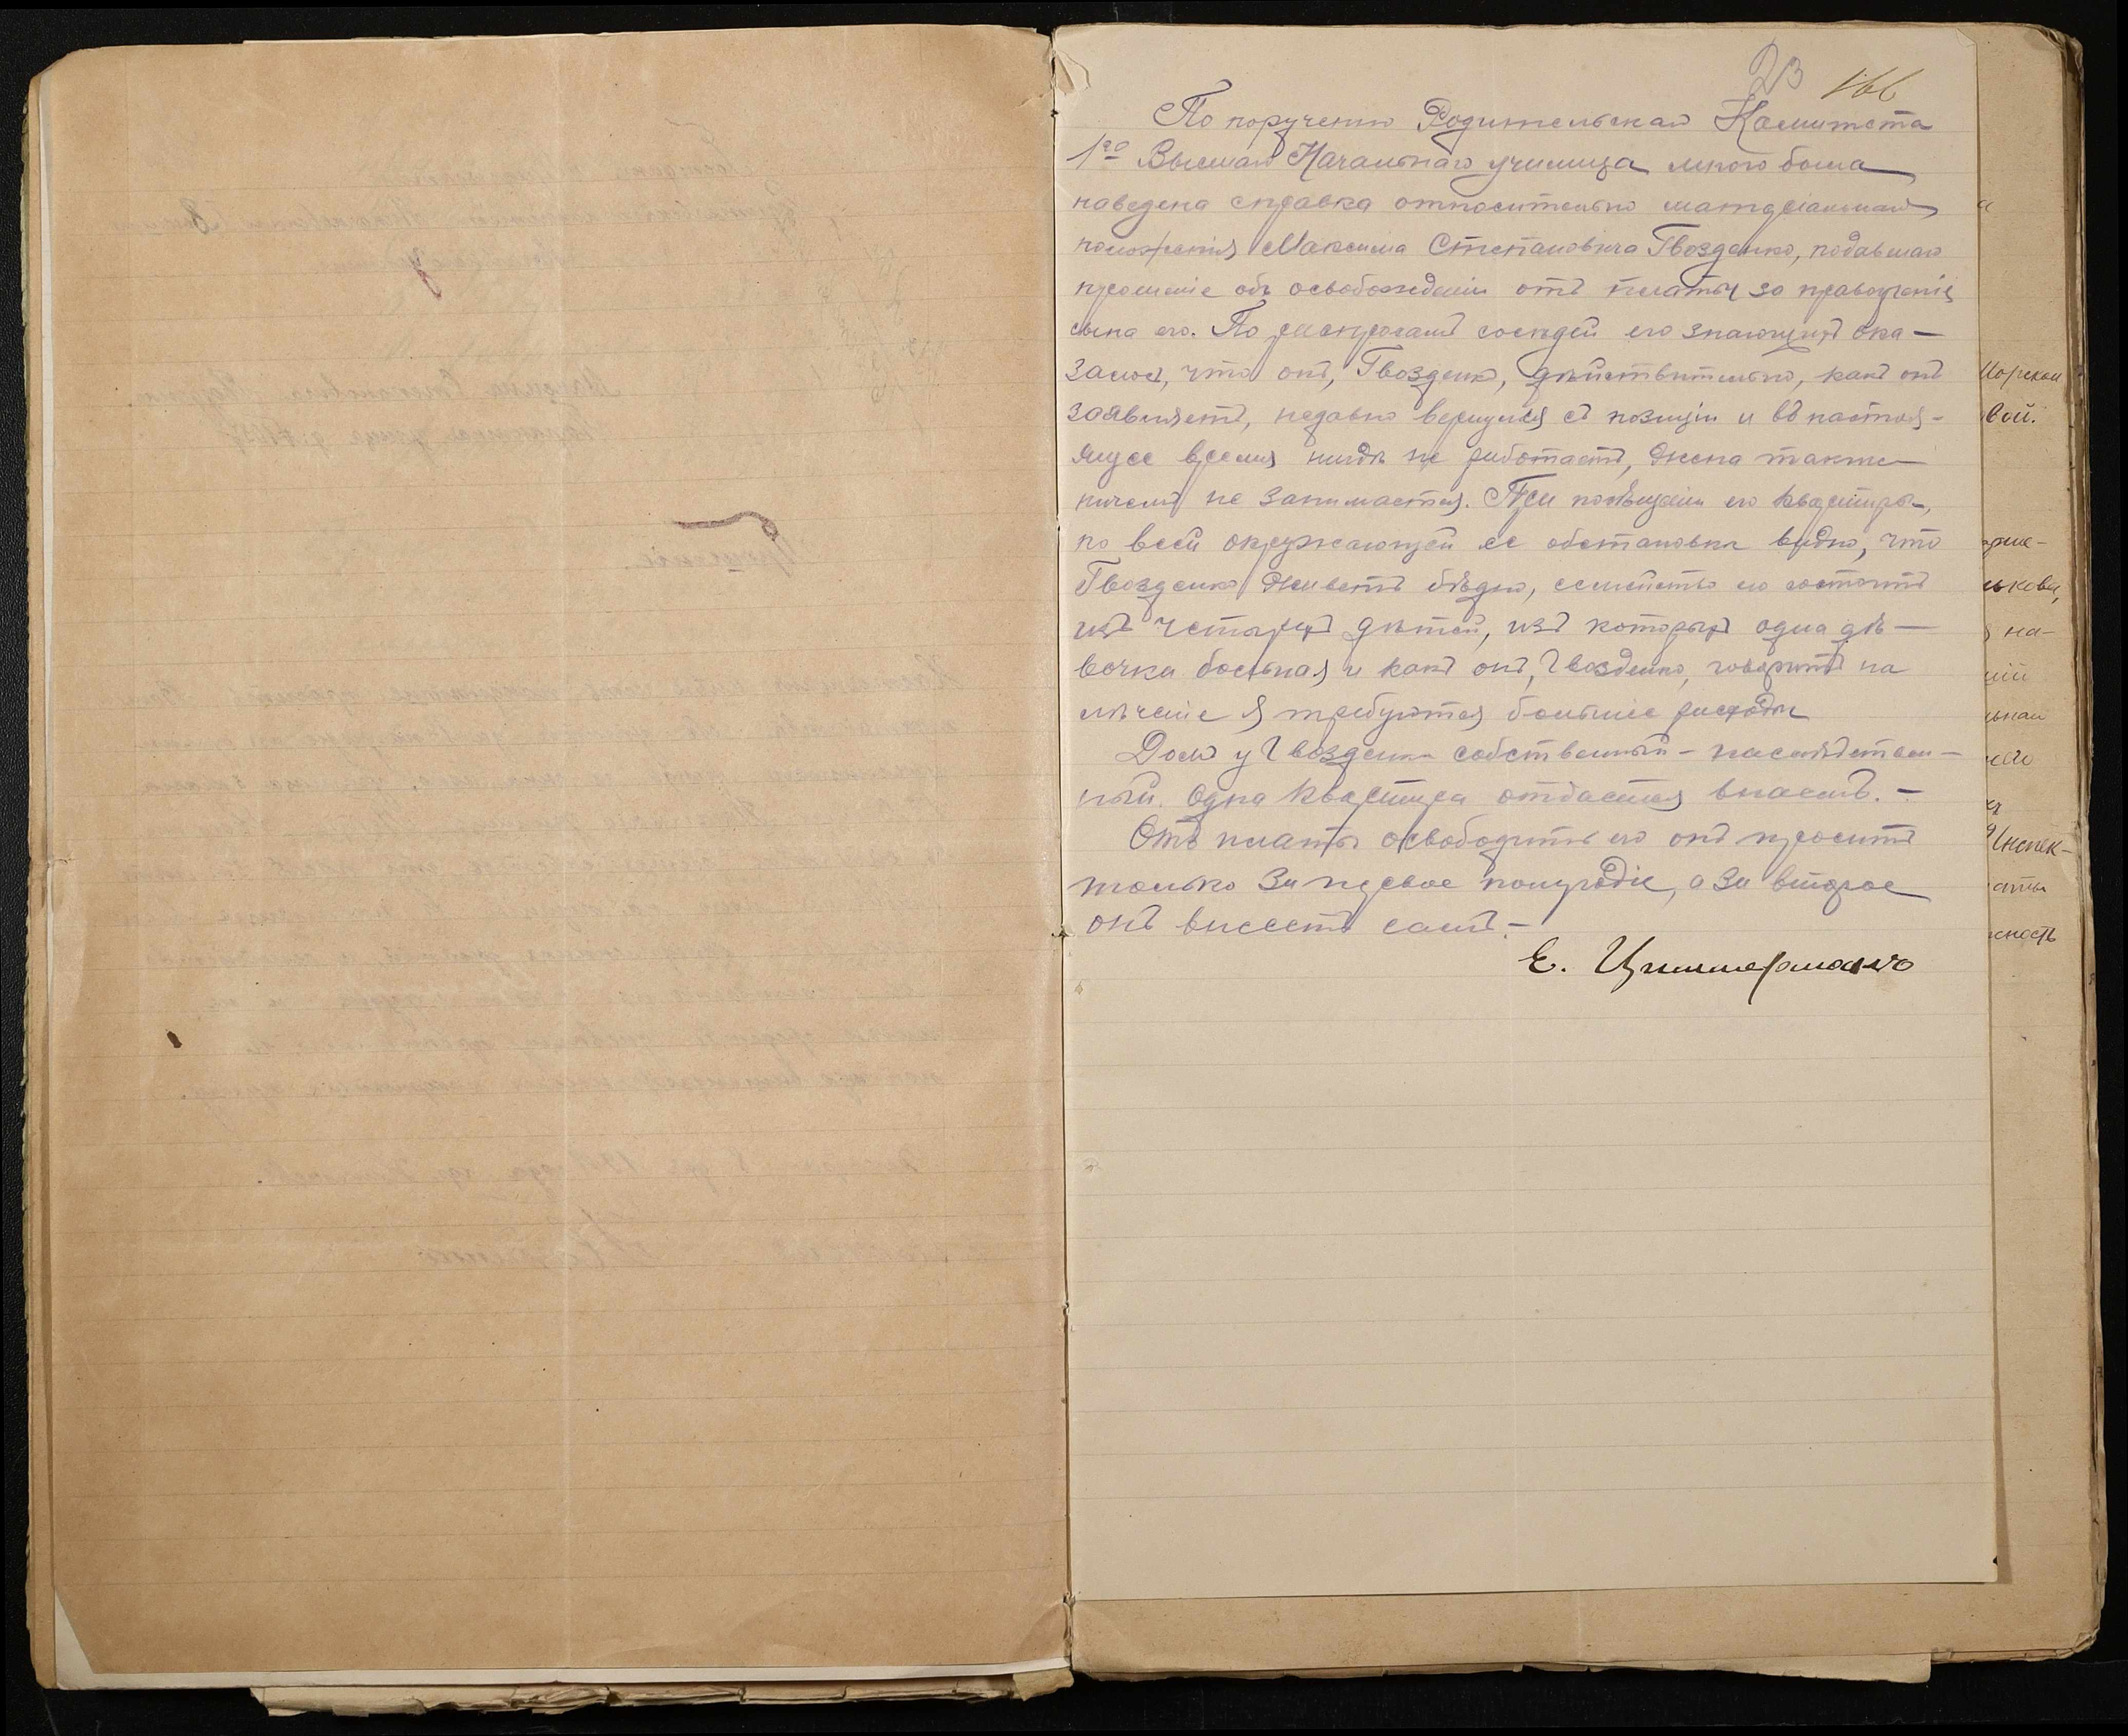 23 166
По порученію Родительскаго Комитета
1го Высшаго Начальнаго училища мною была
наведена справка относительно матеріальнаго
положенія Максима Степановича Гвозденко, подавшаго
прошеніе объ освобожденіи отъ платы за правоученіе
сына его. По распросамъ сосѣдей его знающихъ ока-
залось, что онъ, Гвозденко, дѣйствительно, какъ онъ
заявляетъ, недавно вернулся съ позиціи и въ настоя-
щее время нигдѣ не работаетъ, жена также
ничемъ не занимается. При посѣщеніи его квартиры,
по всей окружающей ее обстановкѣ видно, что
Гвозденко живетъ бѣдно, семейство его состоитъ
изъ четырехъ дѣтей, изъ которыхъ одна дѣ-
вочка больная и какъ онъ, Гвозденко, говоритъ на
лѣченіе я требуются большіе расходы
Домъ у Гвозденко собственный - наслѣдствен-
ный. Одна квартира отдается внаемъ. -
Отъ платы освободить его онъ проситъ
только за первое полугодіе, а за второе
онъ внесетъ самъ. -
Е. Циммерманъ
Морской
вой.
ькова,
на-
Инспек-